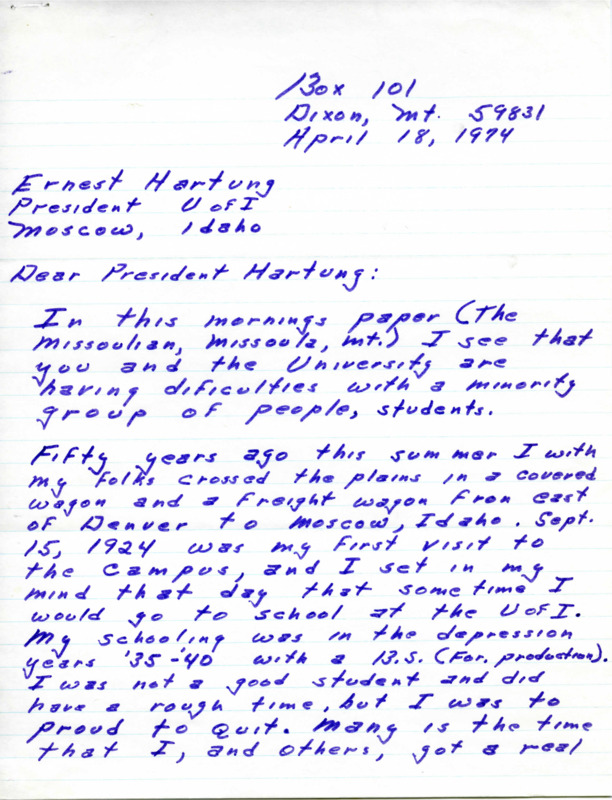 Box 101
Dixon, Mt. 59831
April 18, 1974
Ernest Hartung
President U of I
Moscow, Idaho
Dear President Hartung:
In this mornings paper (The
Missoulian, Missoula, Mt.) I see that
you and the University are
having dificulties with a minority
group of people, students.
Fifty years ago this summer I with
my folks crossed the plains in a covered
wagon and a freight wagon fron east
of Denver to Moscow, Idaho. Sept.
15, 1924 was my first visit to
the campus, and I set in my
mind that day that some time I
would go to school at the U of I.
My schooling was in the depression
years '35-'40 with a B.S. (For. production).
I was not a good student and did
have a rough time, but I was to
proud to quit. Many is the time
that I, and others, got a real